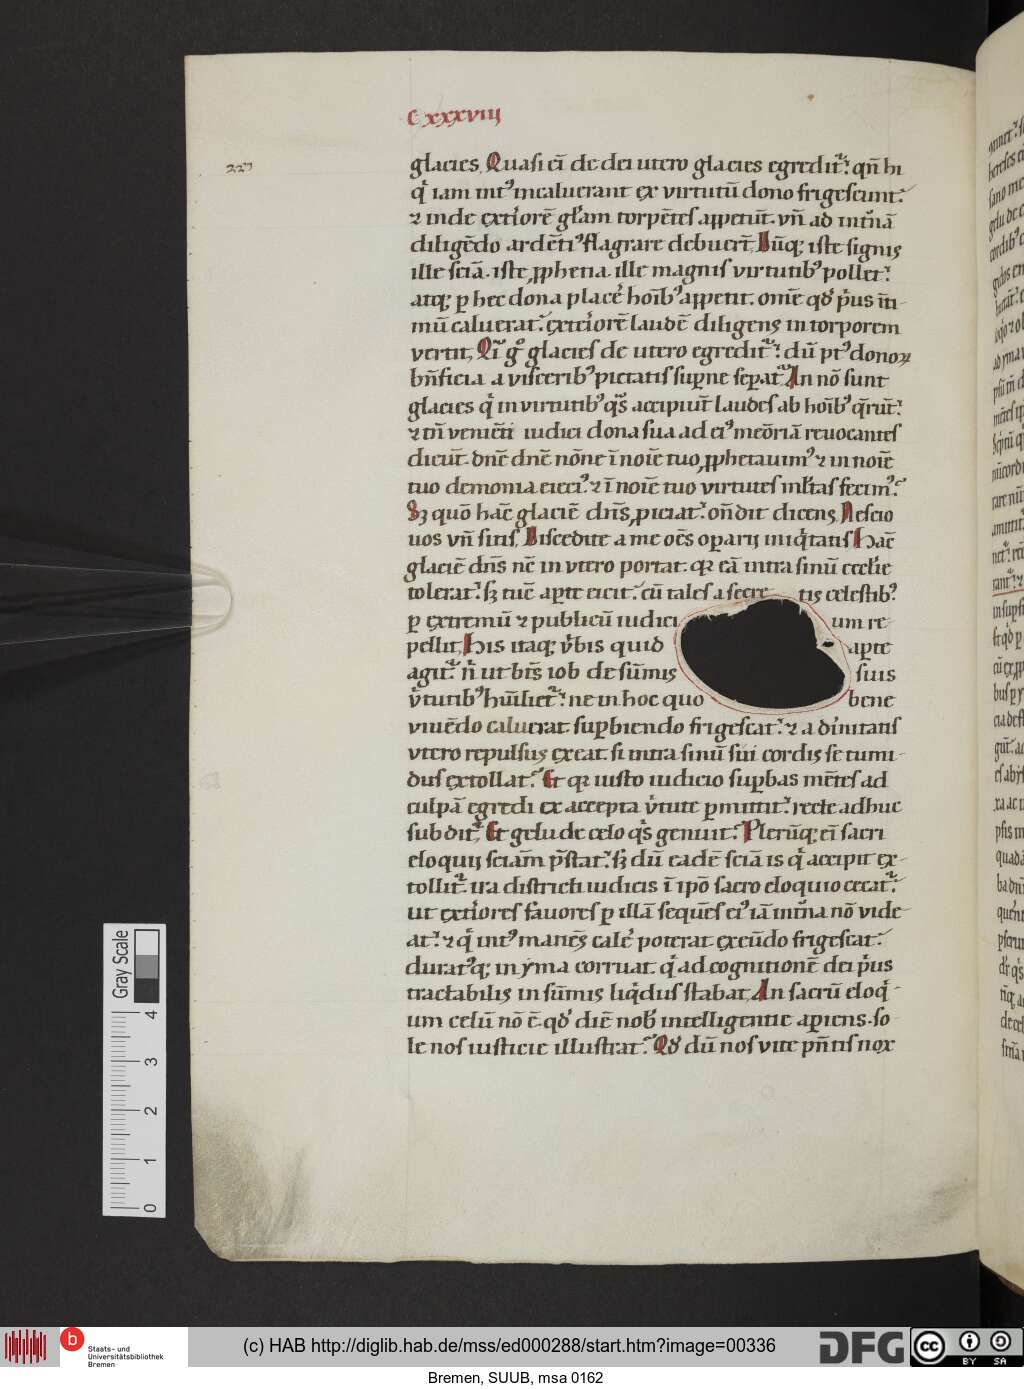 C xxxviij
227
glacies. Quasi ei̅ de dei utero glacies egredit᷑. qn̅ hi
qͥ iam int᷒ incaluerant ex virtutu̅ dono frigescunt.
⁊ inde exteͥore̅ gl̅am torpe̅tes appetu̅t. vn̅ ad int̅na̅
dilige̅do arde̅ti᷒ flagrare debuer̅t. Iu̅q; iste signis
ille scia̅. iste ꝓphetia. ille magnis virtutib᷒ pollet.
atq; ꝑ hec dona place̅ hoi̅b᷒ appetit. om̅e qd̅ pͥus in̅ti
mu̅ caluerat. exteͥore̅ laude̅ diligens in torporem
vertit. Qͥ g̊ glacies de utero egredit᷑. du̅ pt᷒ donoꝝ
bn̅ficia a viscerib᷒ pietatis suꝑne seꝑat᷑. An no̅ sunt
glacies qͥ in virtutib᷒ qͣs accipiu̅t laudes ab hoi̅b᷒ qͣru̅t.
⁊ tn̅ venie̅ti iudici dona sua ad ei᷒ me̅oria̅ revocantes
dicu̅t. dn̅e dn̅e no̅ne i̅ noi̅e tuo ꝓphetauim᷒ ⁊ in noi̅e
tuo demonia eieci᷒. ⁊ i̅ noi̅e tuo virtutes ml̅tas fecim᷒.
Sꝫ quo̅ hac̅ glacie̅ dn̅s ꝓiciat. on̅dit dicens. Nescio
uos vn̅ sitis. Discedite a me oe̅s oꝑarij iniqͥtatis. Hac̅
glacie̅ dn̅s nc̅ in vtero portat. qꝛ ea̅ intra sinu̅ eccl̅ie
tolerat. sꝫ tu̅c aꝑte eicit. cu̅ tales a secre tis celestib᷒
ꝑ extremu̅ ⁊ publicu̅ iudici um re
pellit. His itaq; v̅bis quid aꝑte
agit᷑. n̅ ut bt̅s iob de su̅mis suis
vͥtutib᷒ humiliet᷑. ne in hoc quo bene
viue̅do caluerat suꝑbiendo frigescat. ⁊ a diu̅nitatis
vtero repulsus exeat. si intra sinu̅ sui cordis se tumi
dus extollat. Et qꝛ iusto iudicio suꝑbas me̅tes ad
culpa̅ egredi ex accepta vͥtute ꝑmittit. recte adhuc
subdit᷑. Et gelu de celo qͥs genuit. Pleru̅q; ei̅ sacri
eloquij scia̅m p̅stat. sꝫ du̅ eade̅ scia̅ is qͥ accipit ex
tollit᷑. ira districti iudicis i̅ ip̅o sacro eloquio cecat᷑.
ut exteͥores favores ꝑ illa̅ seque̅s ei᷒ ia̅ int̅na no̅ vide
at. ⁊ qͥ int᷒ mane̅s cale̅ poterat exeu̅do frigescat.
durat᷒q; in yma corruat. qͥ ad cognitione̅ dei pͥus
tractabilis in su̅mis liqͥdus stabat. An sacru̅ eloqͥ
um celu̅ no̅ e̅. qd̅ die̅ nob̅ intelligentie aꝑiens. so
le nos iusticie illustrat. Qd̅ du̅ nos vite pn̅tis nox
Gray Scale
4
3
2
1
0
b
Staats- und
Universitätsbibliothek
Bremen
(c) HAB http://diglib.hab.de/mss/ed000288/start.htm?image=00336
DFG
cc BY SA
Bremen, SUUB, msa 0162